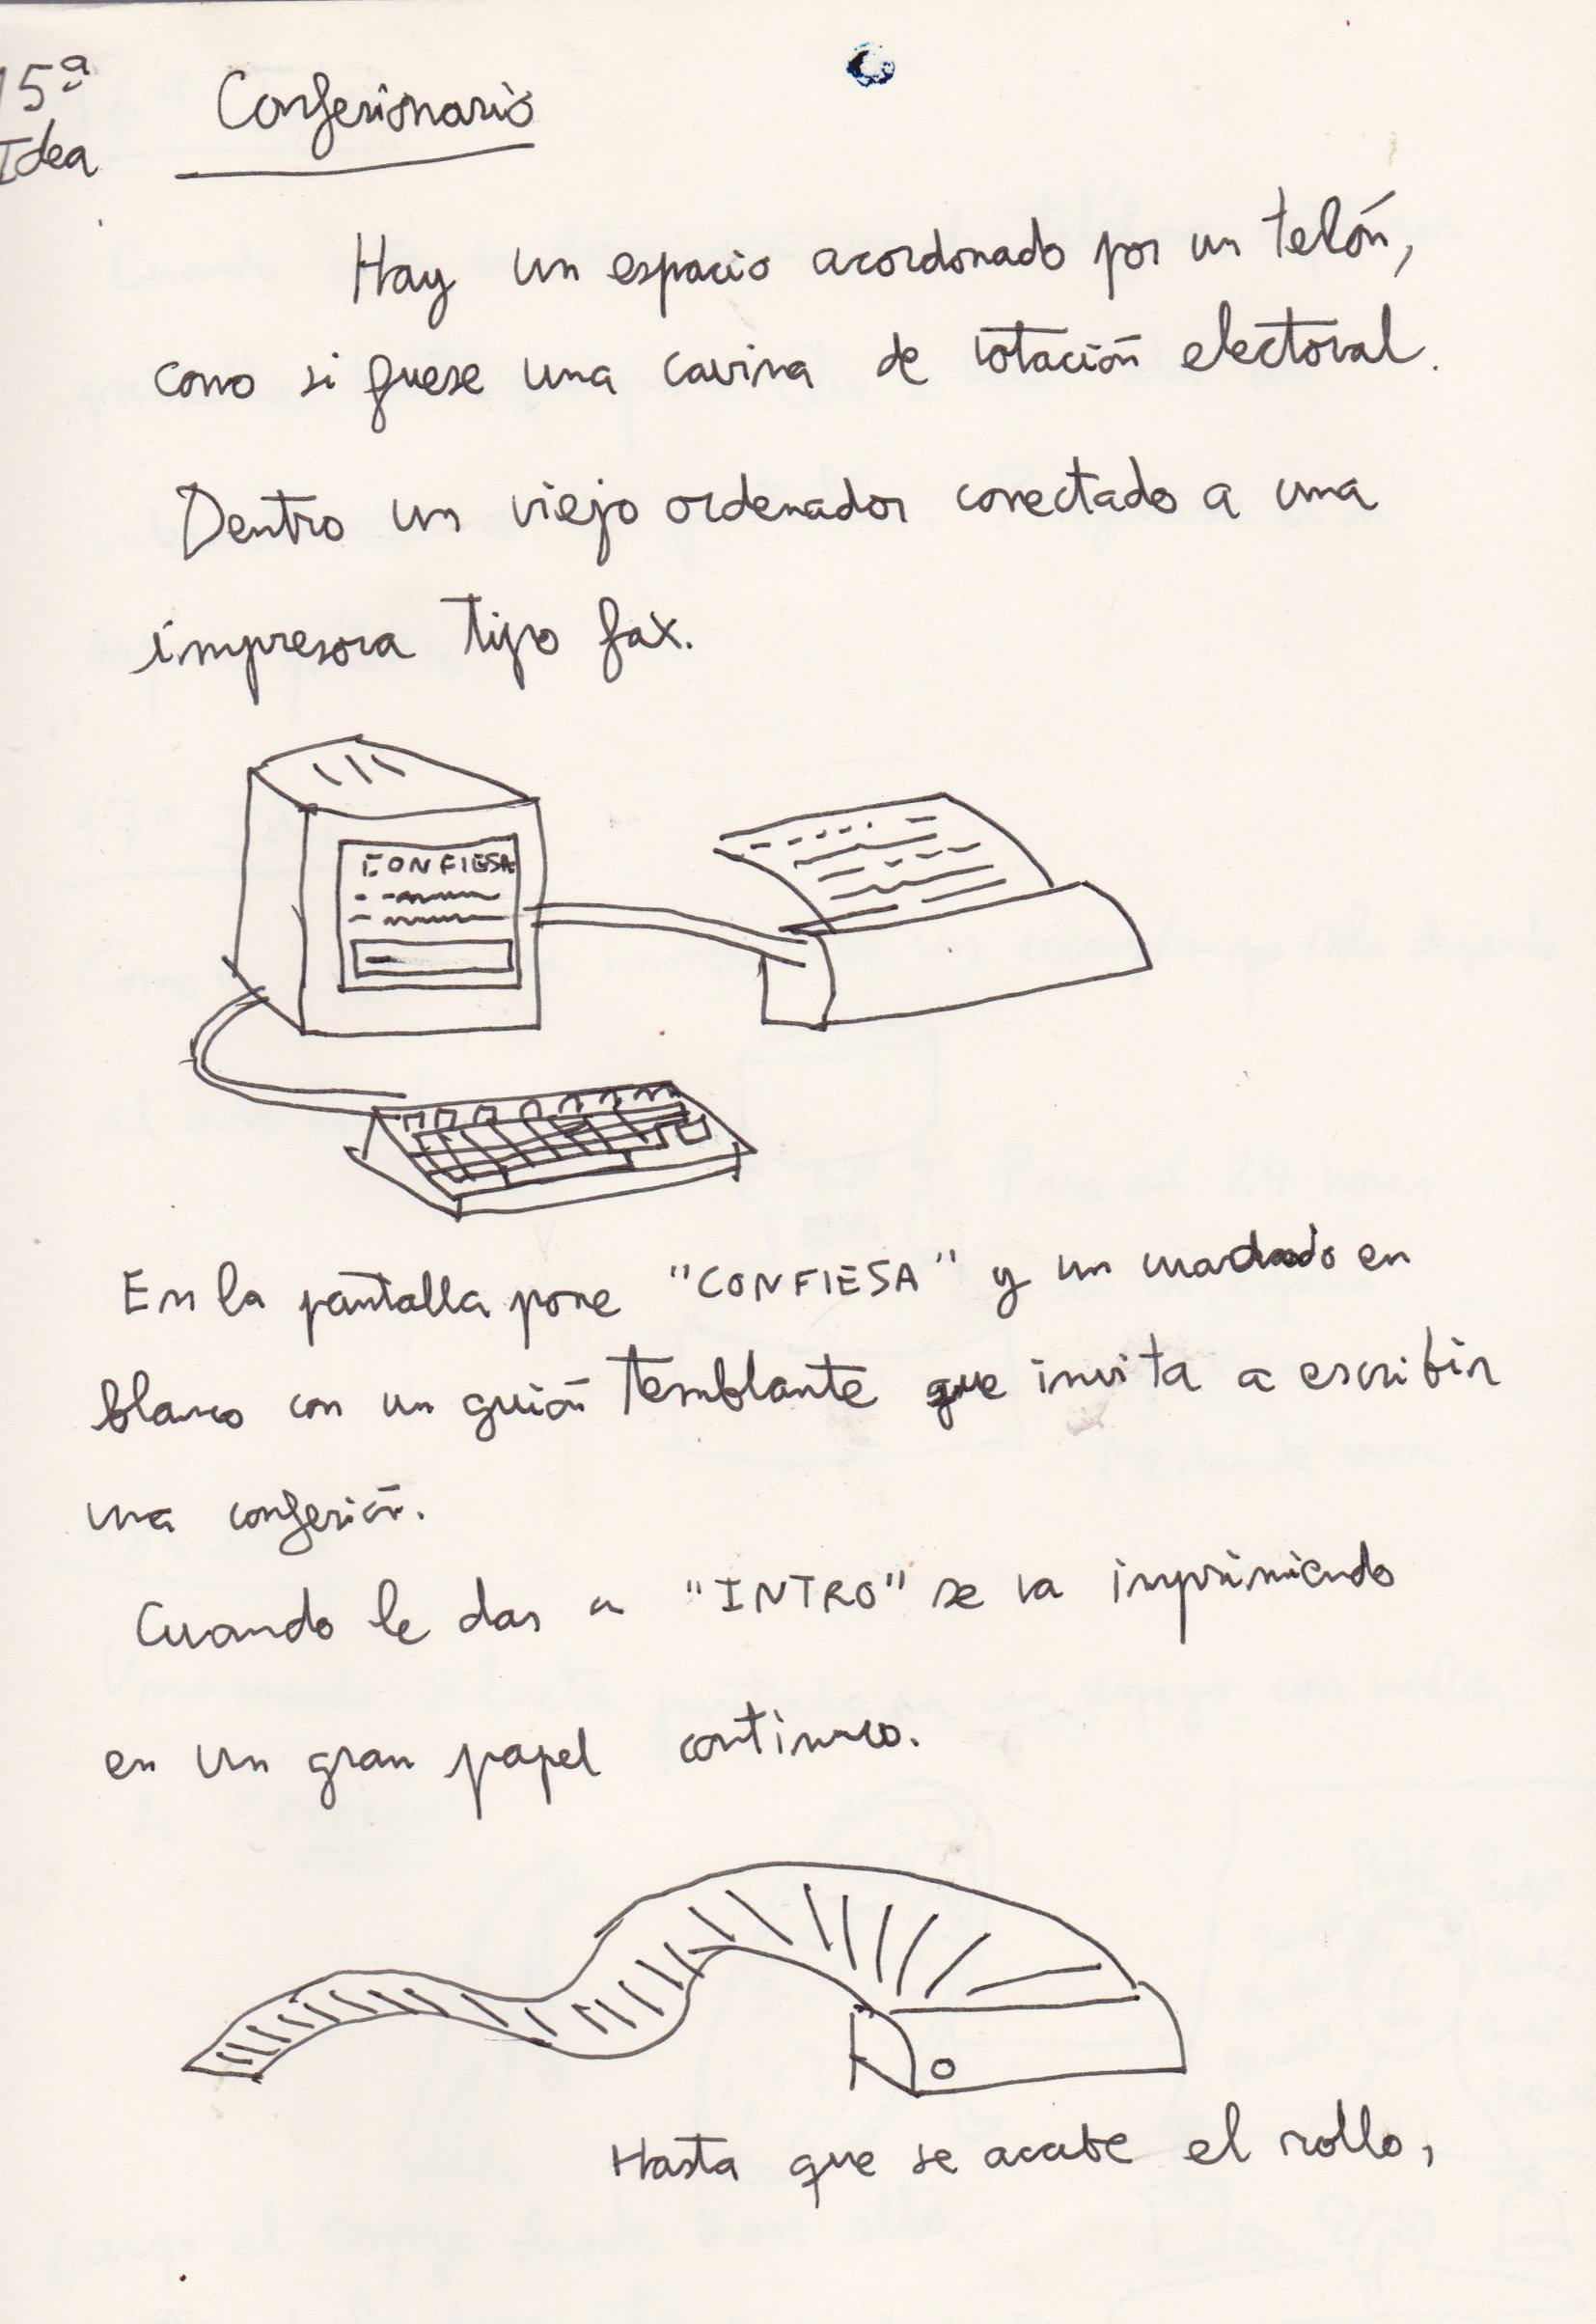 15ª
Idea
Confesionario
Hay un espacio acordonado por un telón,
como si fuese una cavina de votación electoral.
Dentro un viejo ordenador conectado a una
impresora tipo fax.
CONFIESA
En la pantalla pone "CONFIESA" y un cuadrado en
blanco con un guión temblante que invita a escribir
una confesión.
Cuando le das a "INTRO" se va imprimiendo
en un gran papel continuo.
Hasta que se acabe el rollo,